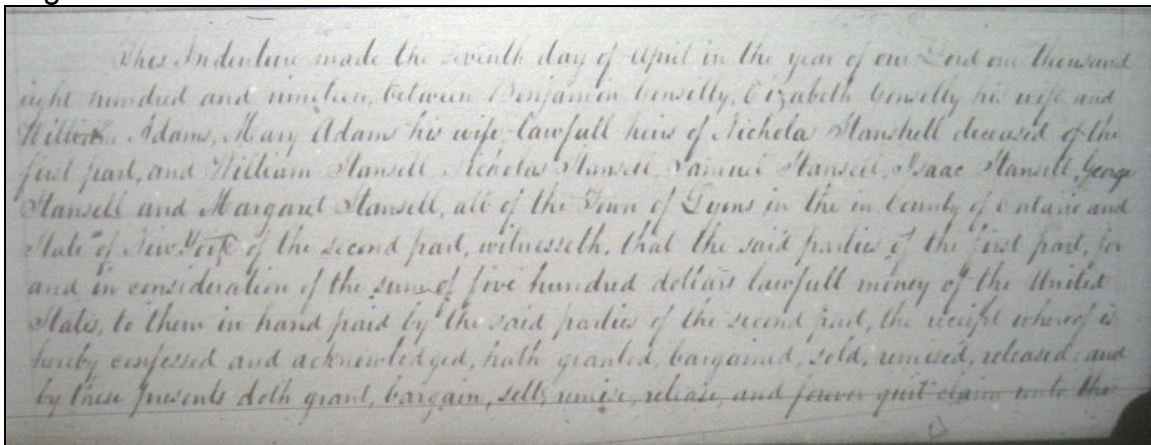 This Indenture made the seventh day of April in the year of our Lord one thousand
eight hundred and nineteen, between Benjamin Conselly, Elizabeth Conselly his wife and
William Adams, Mary Adams his wife lawfull heirs of Nichola Stanshell deceased of the
first part, and William Stansell Nicholas Stansell, Samuel Stansell, Isaac Stansell, George
Stansell and Margaret Stansell, all of the Town of Lyons in the in County of Ontario and
State of New York of the second part, witnesseth, that the said parties of the first part, for
and in consideration of the sum of five hundred dollars lawfull money of the United
States, to them in hand paid by the said parties of the second part, the receipt whereof is
hereby confessed and acknowledged, hath granted, bargained, sold, remised, released and
by these presents doth grant, bargain, sell, remise, release, and forever quit claim unto the